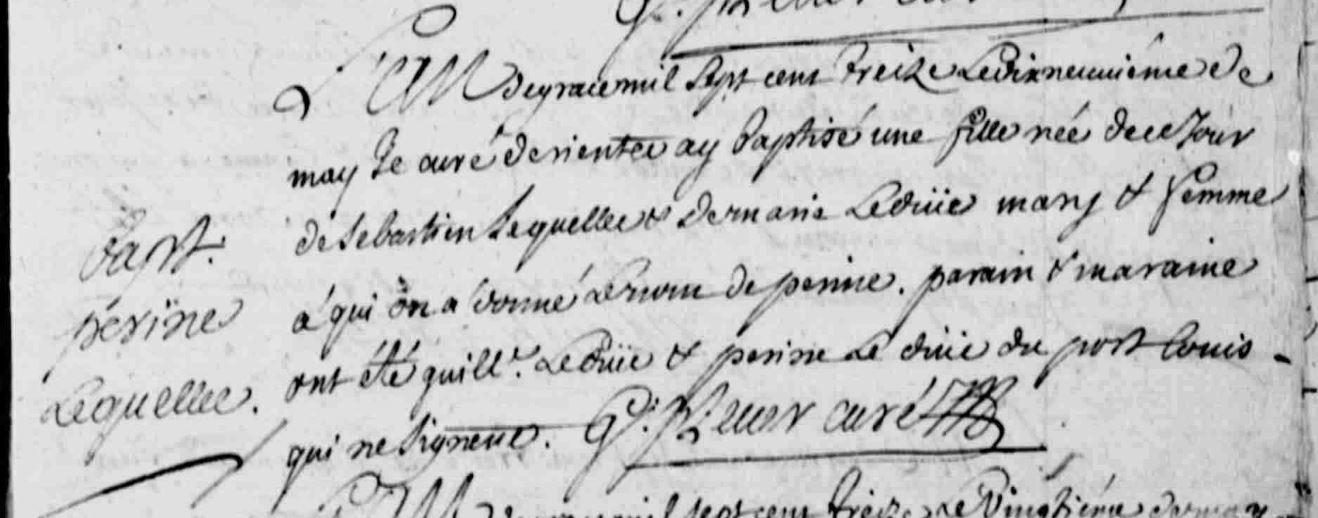 L'AN de grace mil sept cent treize Le dix neuuiéme de
may Je curé de riantec ay baptisé une fille née de ce Jour
de Sebastien Lequellec & de marie Le duic mary & femme
à qui on a donné Le nom de perine. parain & maraine
ont été quill.e Le duic & perine Le duic du port Louis
qui ne signent. curé
bapt.
périne
Lequellec.
L'AN de grace mil sept cent treize Le vingtiéme de may